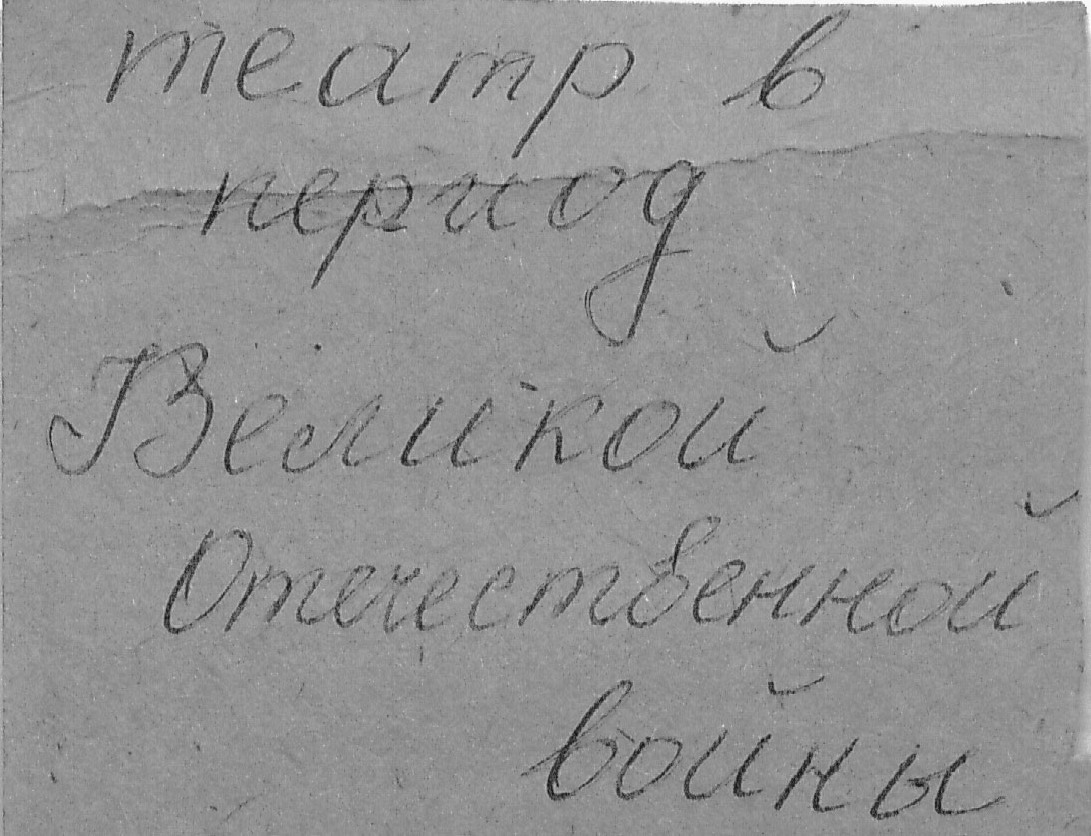 театр в
период
Великой
Отечественной
войны